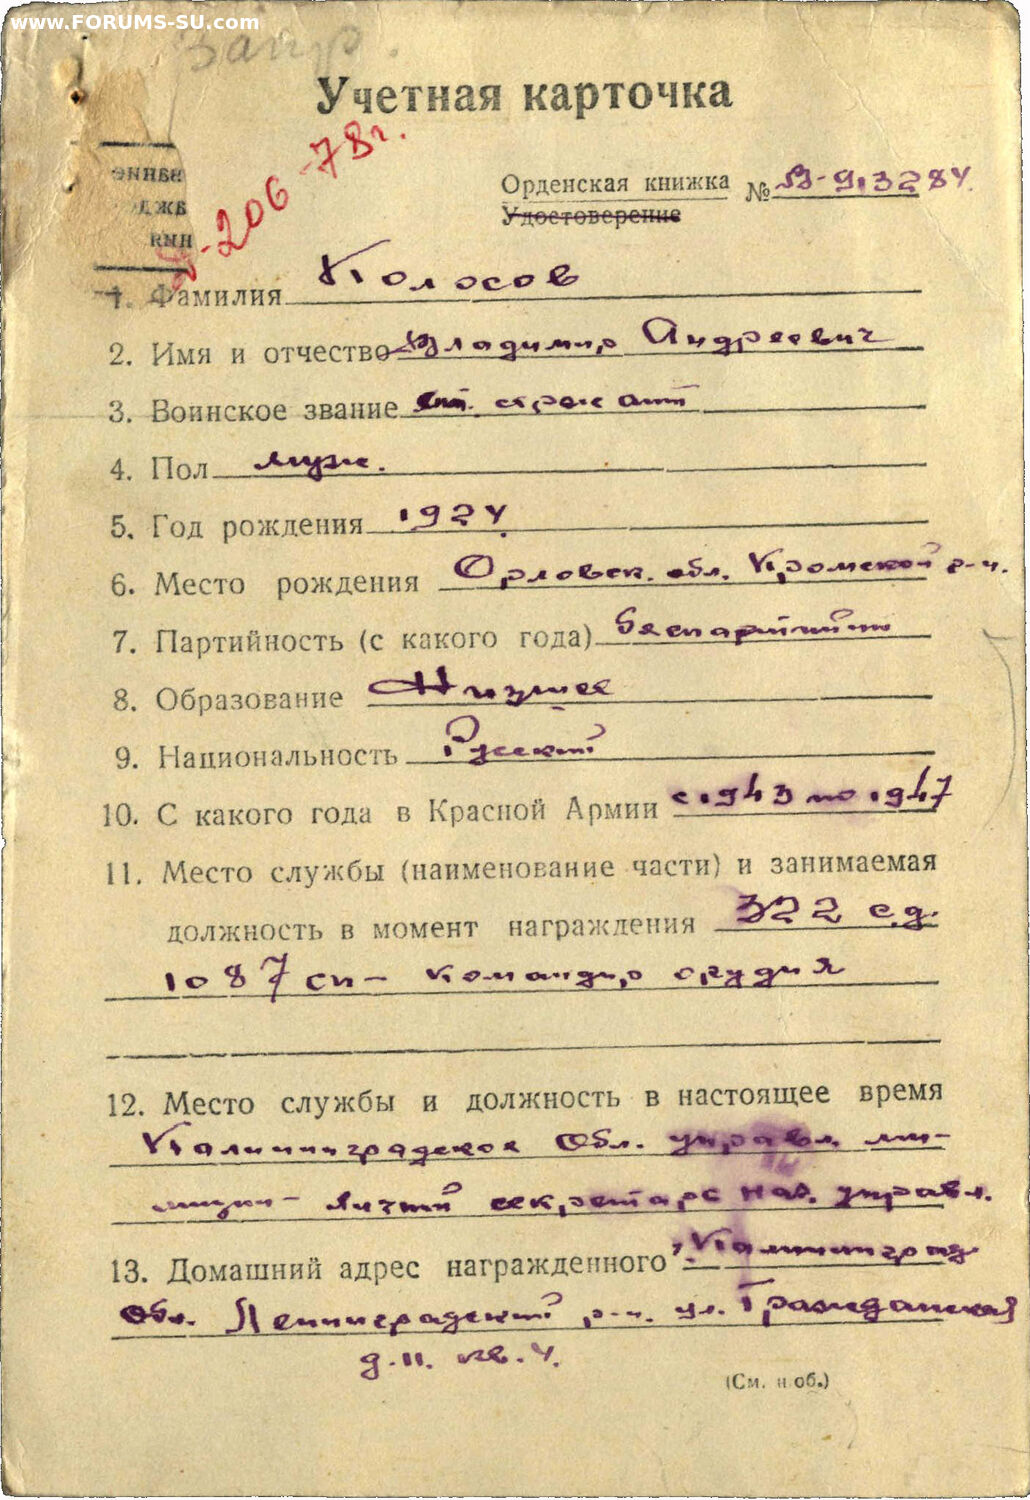 www.FORUMS-SU.com
Запр.
Учетная карточка
-206-78г.
Орденская книжка № В-913284
Удостоверение
1. Фамилия Колосов
2. Имя и отчество Владимир Андреевич
3. Воинское звание ст. сержант
4. Пол муж.
5. Год рождения 1924
6. Место рождения Орловск. обл. Кромской р-н.
7. Партийность (с какого года) беспартийный
8. Образование Низшее
9. Национальность Русский
10. С какого года в Красной Армии с 1943 по 1947
11. Место службы (наименование части) и занимаемая
должность в момент награждения 322 с.д.
1087 сп - командир орудия
12. Место службы и должность в настоящее время
Калининградское Обл. управл. ми-
лиции - Личный секретарь нач. управл.
13. Домашний адрес награжденного Калининград.
Обл. Ленинградский р-н. ул. Гражданская
д. 11. кв. 4.
(См. н об.)